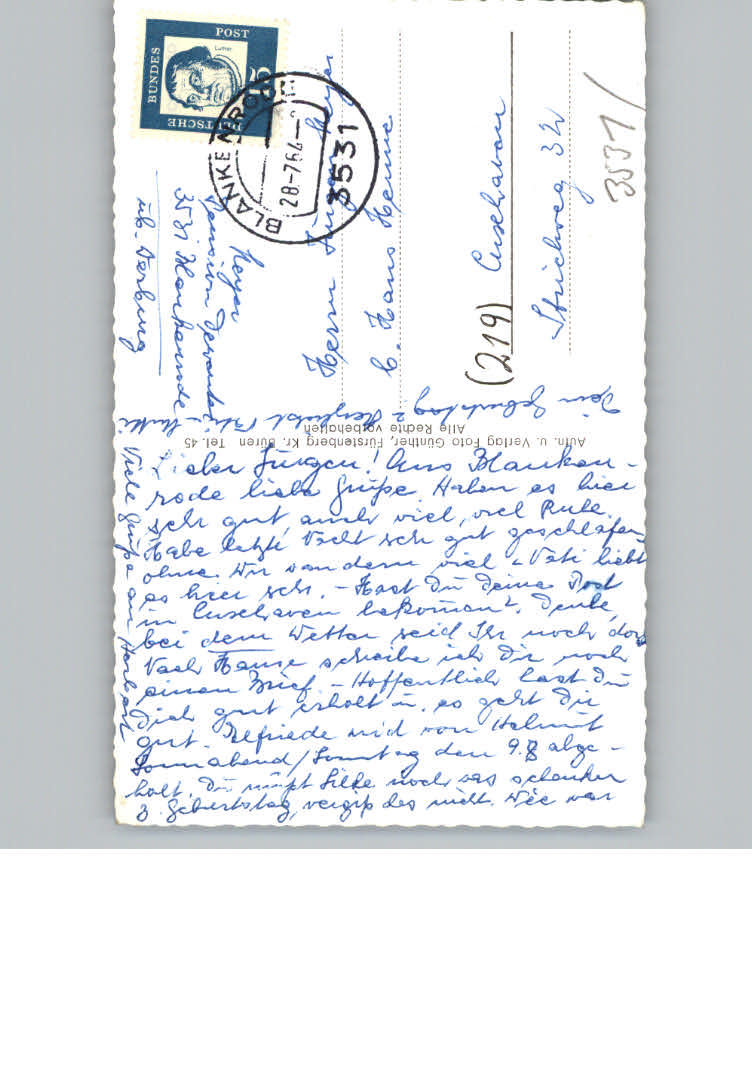 DEUTSCHE
BUNDES
POST
Luther
15
BLANKENRODE
28-7.64
3531
3531/
Herrn Jürgen Meyer
b. Hans Henne
(219) Cuxhaven
Strichweg 32
Meyer
Pension
3531 Blankenrode
üb. Warburg
Aufn. u. Verlag Foto Günther, Fürstenberg Kr. Büren Tel. 45
Alle Rechte vorbehalten
Lieber Jürgen! Aus Blanken-
rode liebe Grüße. Haben es hier
sehr gut, auch viel, viel Ruhe.
Habe letzte Nacht sehr gut geschlafen
ohne. Wir wandern viel u. Vati liebt
es hier sehr. – Hast Du Deine Post
in Cuxhaven bekommen? Denke,
bei dem Wetter seid Ihr noch dort
Nach Hause schreibe ich Dir noch
einen Brief. – Hoffentlich hast Du
Dich gut erholt u. es geht Dir
gut. wird von Helmut
Sonnabend/Sonntag den 9.8 abge-
holt. Du mußt Silke noch was schenken
z. Geburtstag, vergiß das nicht. Wie war
Dein Geburtstag? Herzlichst Vati – Mutti
Viele Grüße an Herbert